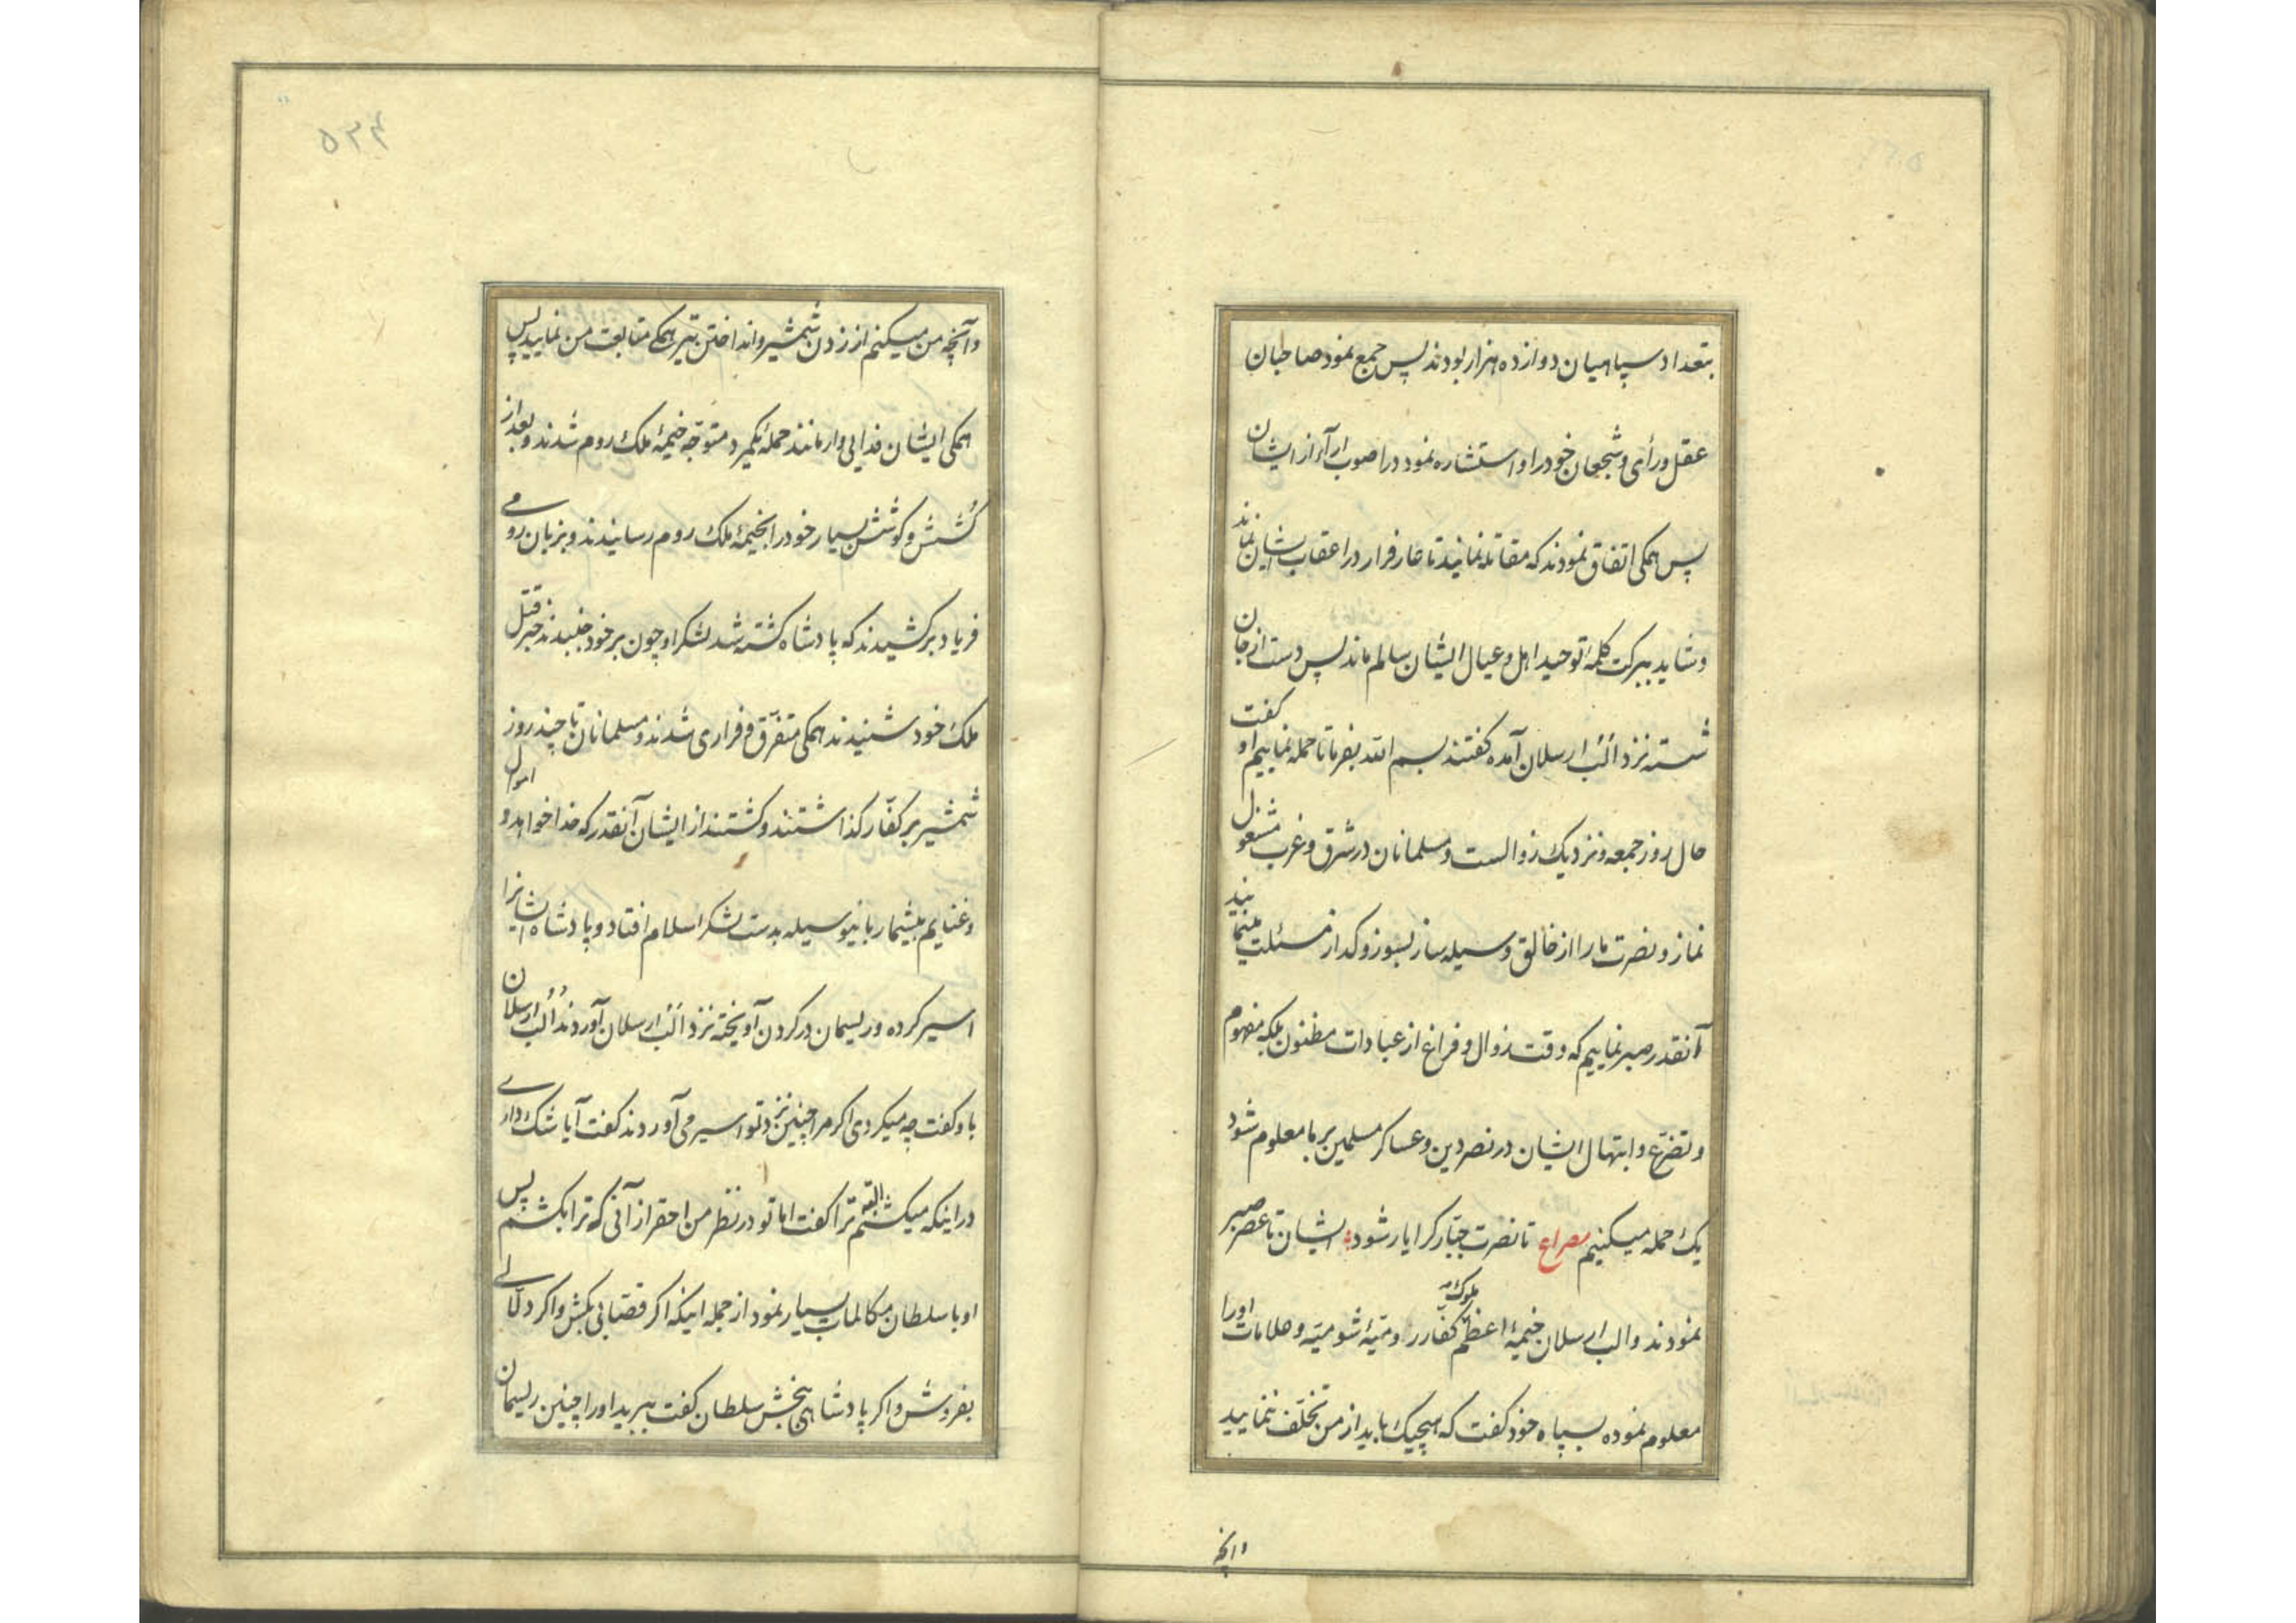 بتعداد سپاهیان دوازده هزار بودند پس جمع نمود صاحبان
عقل و رأی و شجعان خود را و استشاره نمود در اصوب آراء از ایشان
پس همکی اتفاق نمودند که مقاتله نمایند تا عار فرار در اعقاب ایشان نماند
و شاید ببرکت کلمهٔ توحید اهل و عیال ایشان سالم ماند پس دست از جان
شسته نزد الب ارسلان آمده کفتند بسم الله بفرما تا حمله نماییم او کفت
حال روز جمعه و نزدیک زوالست و مسلمانان در شرق و غرب مشغول
نماز و نصرت ما را از خالق وسیله ساز بسوز و کداز مسئلت مینمایند
آنقدر صبر نماییم که وقت زوال و فراغ از عبادات مظنون بلکه مفهوم
و تضرّع و ابتهال ایشان در نصر دین و عساکر مسلمین بر ما معلوم شود
یک حمله میکنیم مصراع تا نصرت جبّار کرا یار شود ایشان تا عصر صبر
نمودند و الب ارسلان خیمهٔ اعظم ملوک کفّار رومیّهٔ شومیّه و علامات او را
معلوم نموده بسپاه خود کفت که هیچیک باید از من تخلّف ننمایید
وآنچه
۵۳۴
وآنچه من میکنم از زدن شمشیر و انداختن تیر همکی متابعت من نمایید پس
همکی ایشان فدایی وار مانند حملهٔ یکمرد متوجّه خیمهٔ ملک روم شدند و بعد از
کُشش و کوشش بسیار خود را بخیمهٔ ملک روم رسانیدند و بزبان رومی
فریاد برکشیدند که پادشاه کشته شد لشکر او چون بر خود جنبیدند خبر قتل
ملک خود شنیدند همکی متفرّق و فراری شدند و مسلمانان تا چند روز
شمشیر بر کفّار کذاشتند و کشتند از ایشان آنقدر که خدا خواهد و اموال
و غنایم بیشمار باینوسیله بدست لشکر اسلام افتاد و پادشاه ایشانرا
اسیر کرده و ریسمان در کردن آویخته نزد الب ارسلان آوردند الب ارسلان
باو کفت چه میکردی اکر مرا چنین نزد تو اسیر می آوردند کفت آیا شک داری
در اینکه میکشتم البته ترا کفت اما تو در نظر من احقر از آنی که ترا بکشم پس
او با سلطان مکالمات بسیار نمود از جمله اینکه اکر قصّابی بکش و اکر دلّالی
بفروش و اکر پادشاهی ببخش سلطان کفت ببرید او را چنین ریسمان